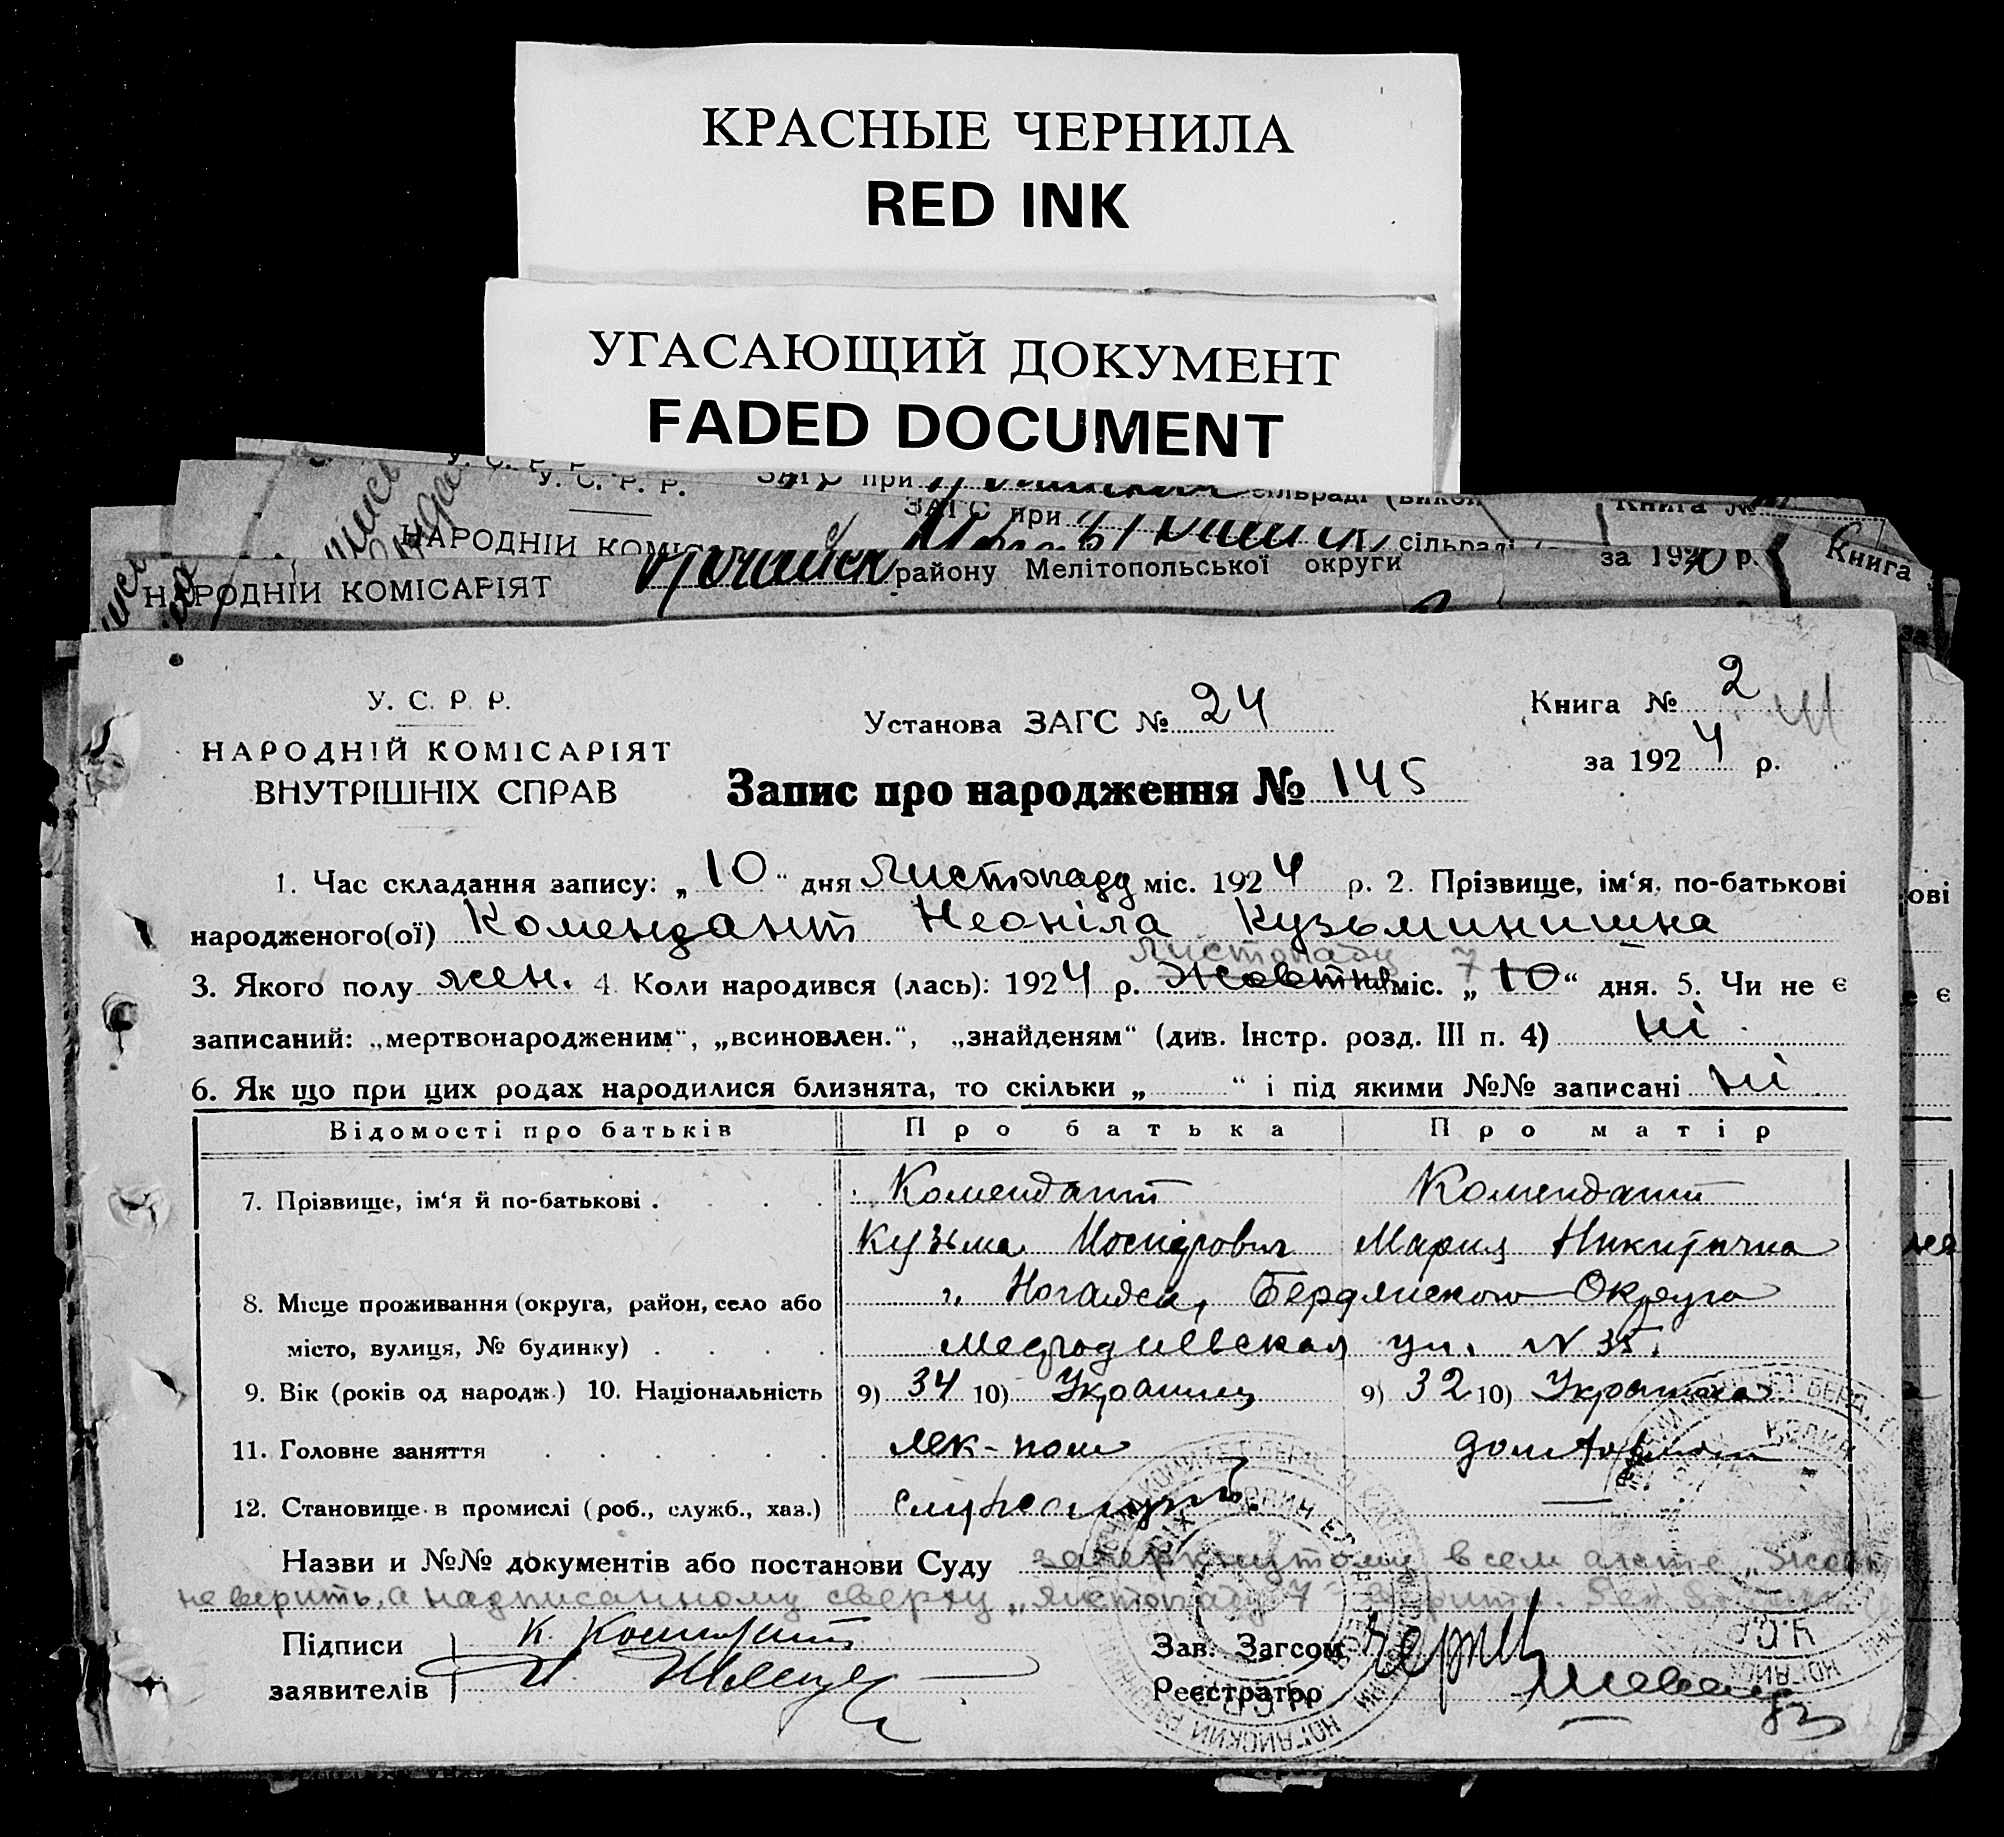 КРАСНЫЕ ЧЕРНИЛА
RED INK
УГАСАЮЩИЙ ДОКУМЕНТ
FADED DOCUMENT
У. С. Р. Р. ЗАГС при сільраді Книга №
У. С. Р. Р. ЗАГС при сільраді
НАРОДНІЙ района Мелітопольської округи за 1920 р. Книга
НАРОДНІЙ КОМІСАРІЯТ
У. С. Р. Р.
НАРОДНІЙ КОМІСАРІЯТ
ВНУТРІШНІХ СПРАВ
Установа ЗАГС № 24
Запис про народження № 145
Книга № 2
за 1924 р.
1. Час складання запису: „10“ дня Листопаду міс. 1924 р. 2. Прізвище, ім‘я, по-батькові
народженого(ої) Комендант Неоніла Кузьминишна
листопаду 7
3. Якого полу жен. 4. Коли народився (лась): 1924 р. Жовтня міс. „10“ дня. 5. Чи не є
записаний: „мертвонародженим“, „всиновлен.“, „знайденям“ (див. Інстр. розд. III п. 4) ні
6. Як що при цих родах народилися близнята, то скільки „ “ і під якими №№ записані ні
Відомості про батьків Про батька Про матір
7. Прізвище, ім‘я й по-батькові . Комендант Комендант
Кузьма Мария Никитична
8. Місце проживання (округа, район, село або г. Ногайск, Бердянского Округа
місто, вулиця, № будинку) ул. N 35.
9. Вік (років од народж.) 10. Національність 9) 34 10) Украинец 9) 32 10) Украинка
11. Головне заняття
12. Становище в промислі (роб., служб., хаз.) служащий
Назви и №№ документів або постанови Суду зачеркнутому в сем акте
не верить, а надписанному сверху „листопаду 7“ верить.
Підписи К. Комендант Зав. Загсом
заявителів Реєстратор